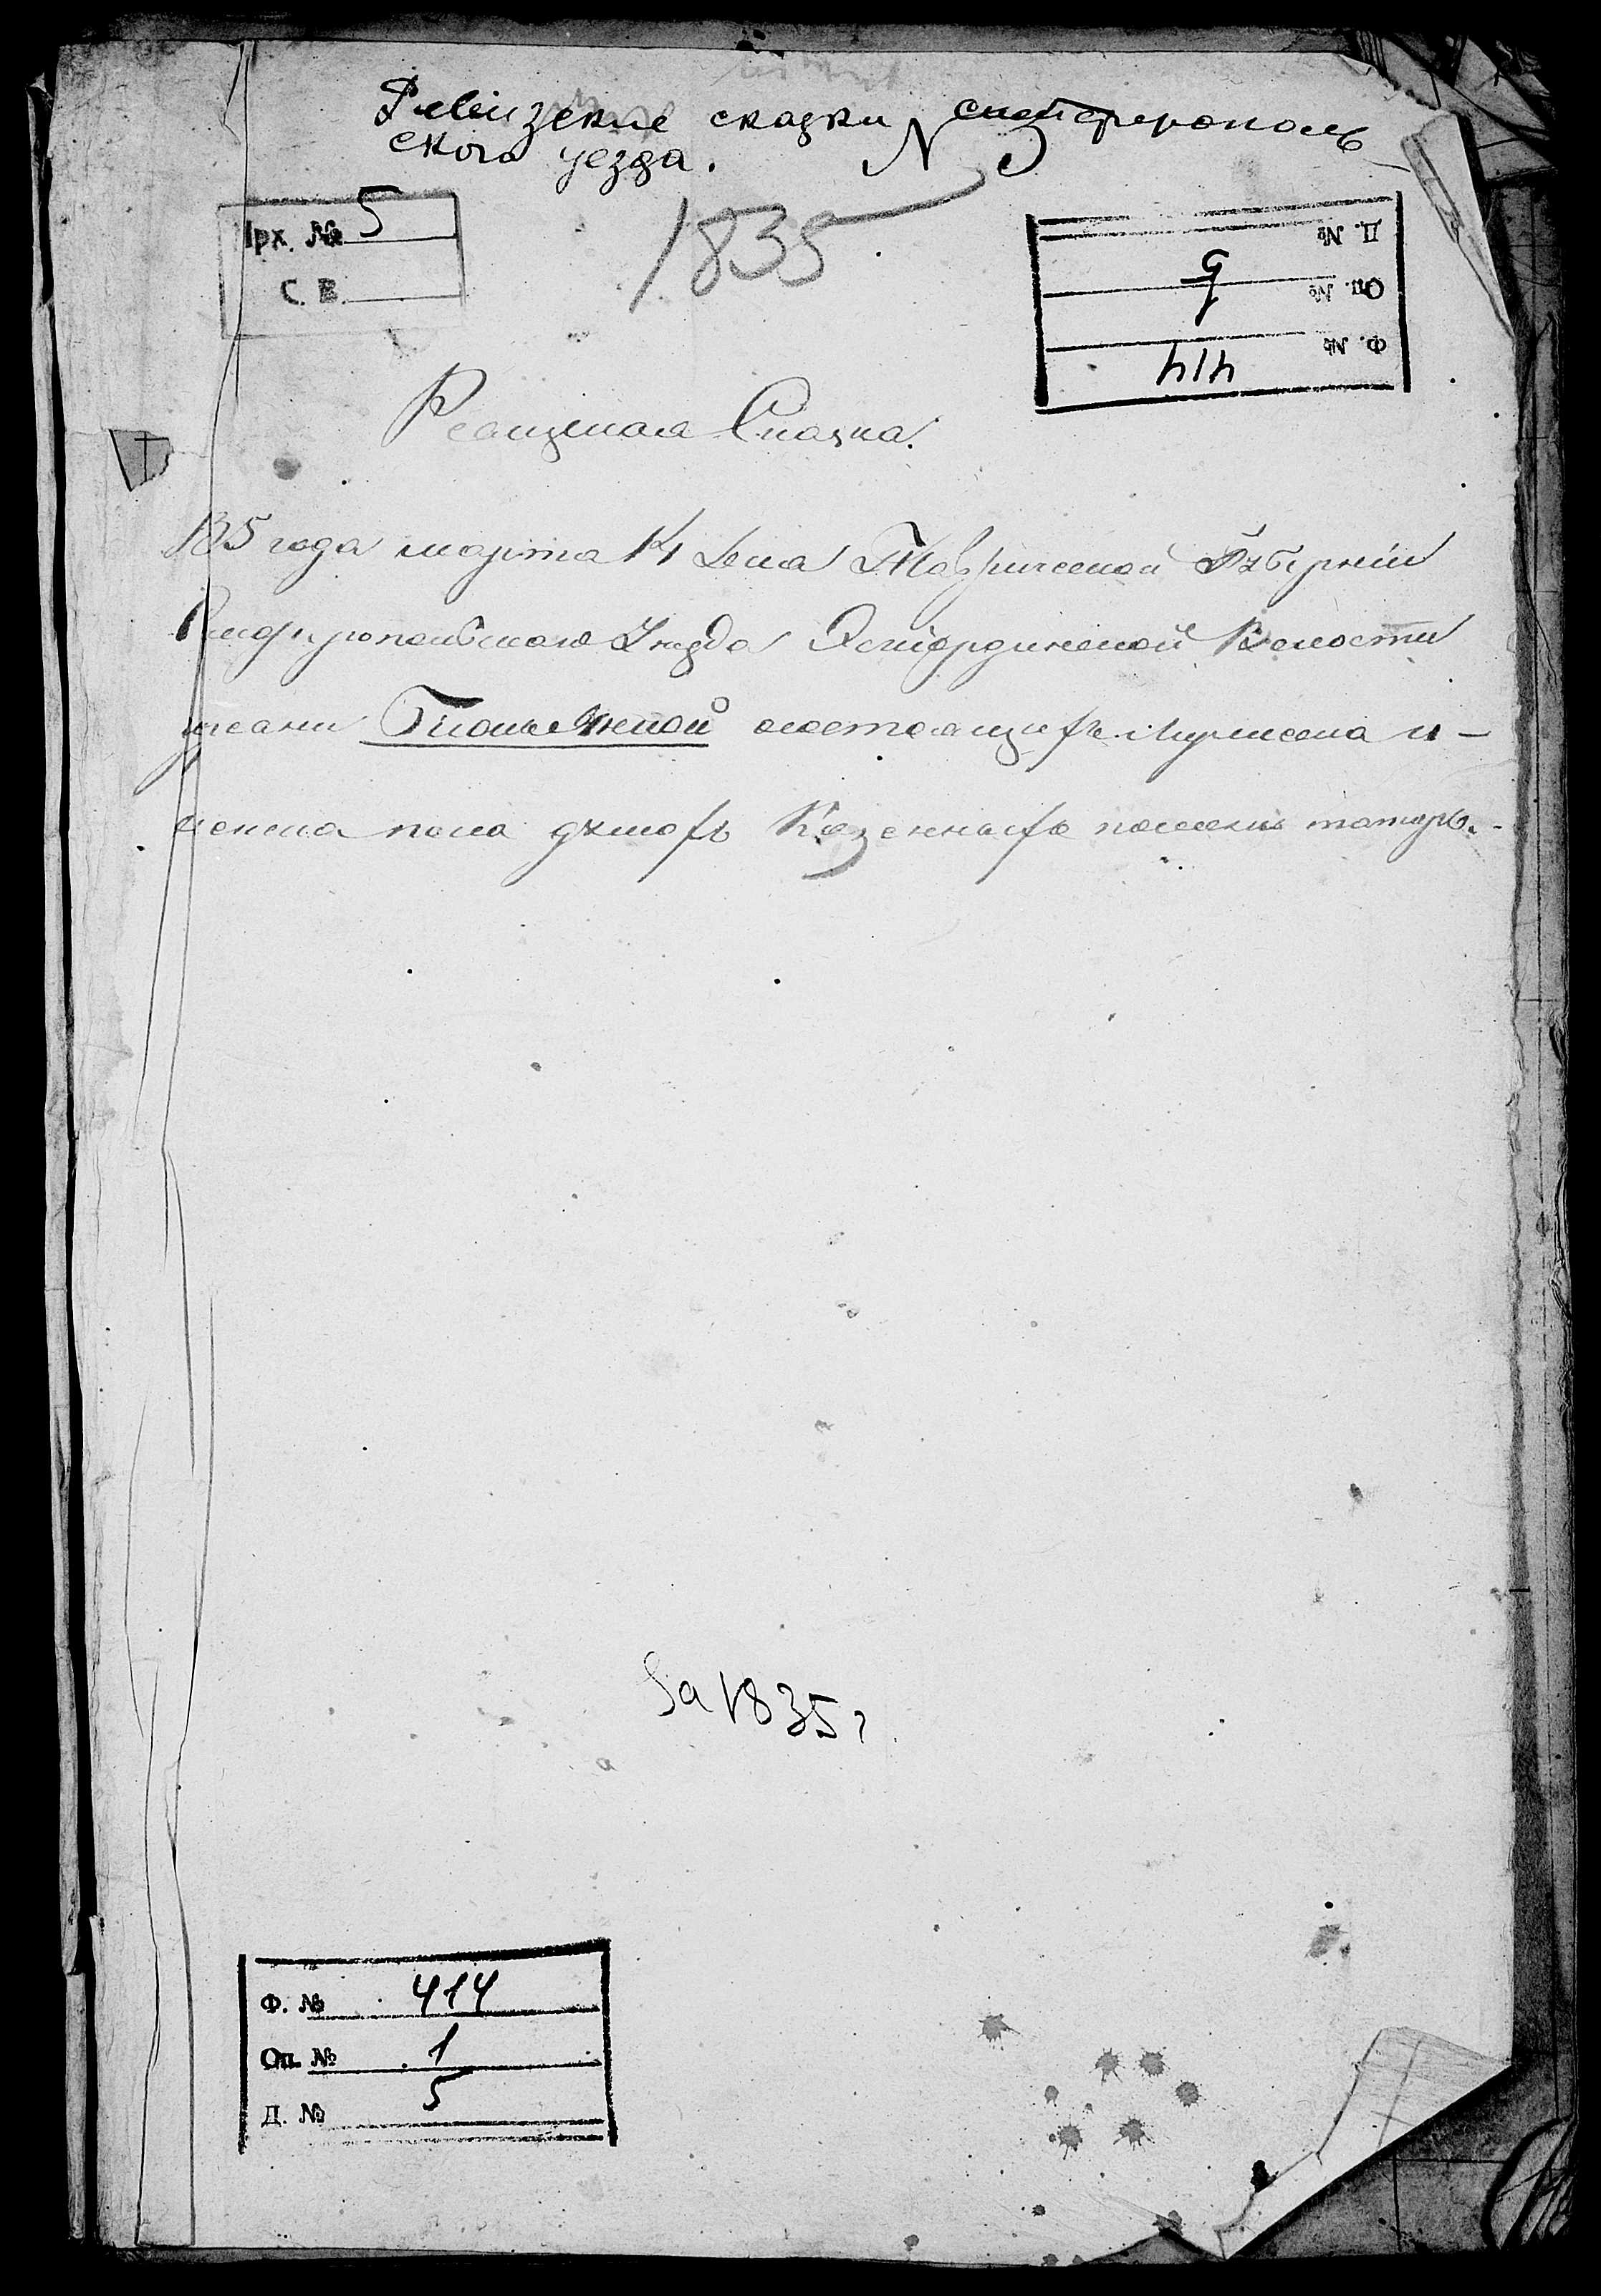 Ревизские сказки Симферополь
ского уезда. N 3
1835
Арх. № 5
С. В.
Д. №
Оп. №
Ф. №
5
1
414
Ревизская Сказка.
1835 года марта 14 дня Таврической Губернии
Симферопольскаго Уезда Эскиординской Волости
деревни состоящих мужеска и -
женска пола душах Казенных поселян татар. -
За 1835 г
Ф. № 414
Оп. № 1
Д. № 5